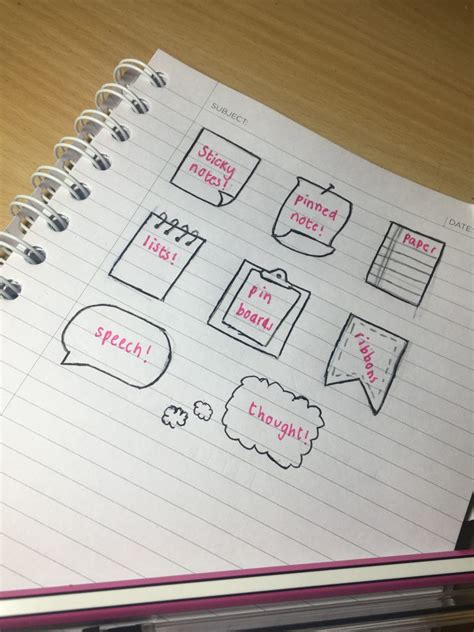 SUBJECT:
DATE:
Sticky
notes!
pinned
note!
paper
lists!
pin
boards
ribbons
speech!
thought!